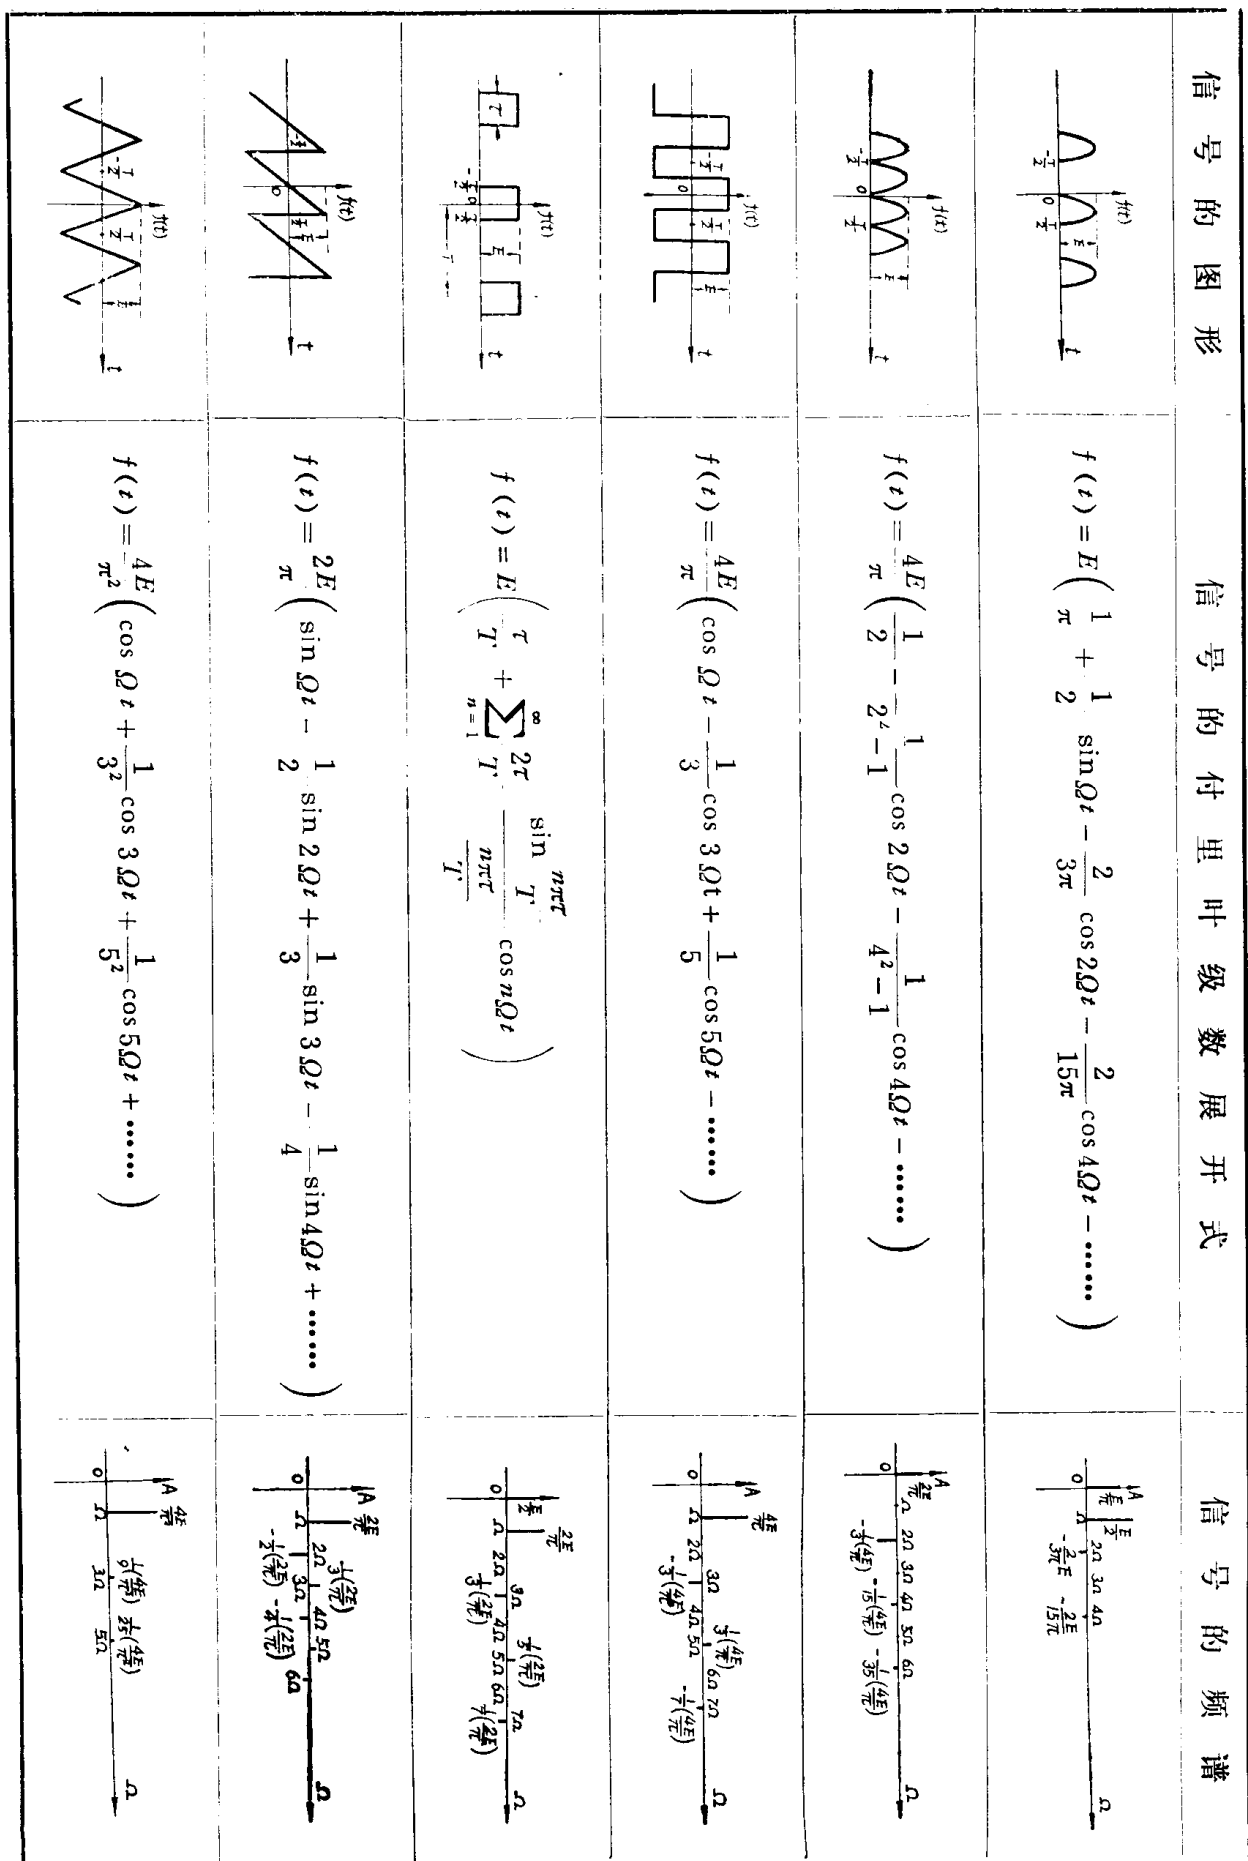 信号的图形 信号的付里叶级数展开式 信号的频谱
f(t)
E
-T/2 0 T/2 t
f(t) = E(1/π + 1/2 sinΩt - 2/3π cos2Ωt - 2/15π cos4Ωt - ……)
A
E/π E/2
0 Ω 2Ω 3Ω 4Ω Ω
-2/3π E -2E/15π
f(t)
E
-T/2 0 T/2 t
f(t) = 4E/π(1/2 - 1/2²-1 cos 2Ωt - 1/4²-1 cos4Ωt - ……)
A
2E/π
0 Ω 2Ω 3Ω 4Ω 5Ω 6Ω Ω
-1/3(4E/π) -1/15(4E/π) -1/35(4E/π)
f(t)
E
-T/2 0 T/2 t
f(t) = 4E/π(cos Ωt - 1/3 cos 3Ωt + 1/5 cos5Ωt - ……)
A
4E/π 1/5(4E/π)
0 Ω 2Ω 3Ω 4Ω 5Ω 6Ω 7Ω Ω
-1/3(4E/π) -1/7(4E/π)
f(t)
τ E
-τ/2 0 τ/2 T t
f(t) = E(τ/T + ∑ n=1 ∞ 2τ/T sin nπτ/T / nπτ/T cosnΩt)
E/2 2E/π 1/5(2E/π)
0 Ω 2Ω 3Ω 4Ω 5Ω 6Ω 7Ω Ω
-1/3(2E/π) 1/7(2E/π)
f(t)
-T/2 0 T/2 E t
f(t) = 2E/π(sin Ωt - 1/2 sin 2Ωt + 1/3 sin 3Ωt - 1/4 sin4Ωt + ……)
A
2E/π 1/3(2E/π)
0 Ω 2Ω 3Ω 4Ω 5Ω 6Ω Ω
-1/2(2E/π) -1/4(2E/π)
f(t)
-T/2 T/2 t
f(t) = 4E/π²(cos Ωt + 1/3² cos 3Ωt + 1/5² cos5Ωt + ……)
A
4E/π² 1/9(4E/π²) 1/25(4E/π²)
0 Ω 3Ω 5Ω Ω